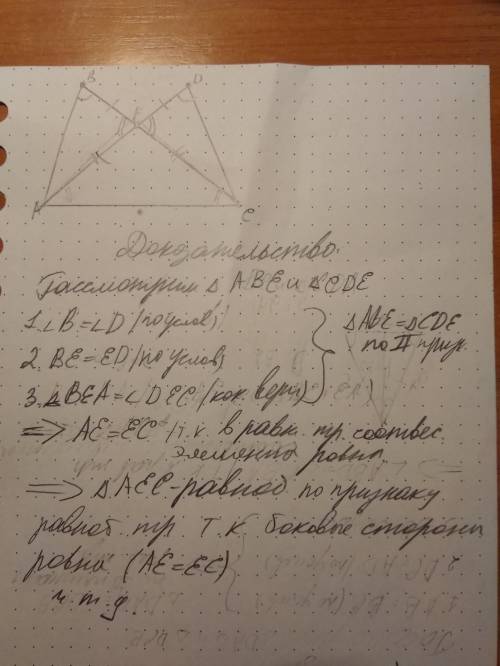 B D
E
A C
Доказательство.
Рассмотрим Δ ABE и ΔCDE
1. ∠B=∠D (по услов)
2. BE=ED (по услов)
3. ∠BEA=∠DEC (как верт)
ΔABE=ΔCDE
по II призн.
=> AE=EC т.к в равн. тр. соответ.
элементы равны.
=> ΔAEC-равноб по признаку
равноб тр. Т. К боковые стороны
равны (AE=EC)
ч. т. д.